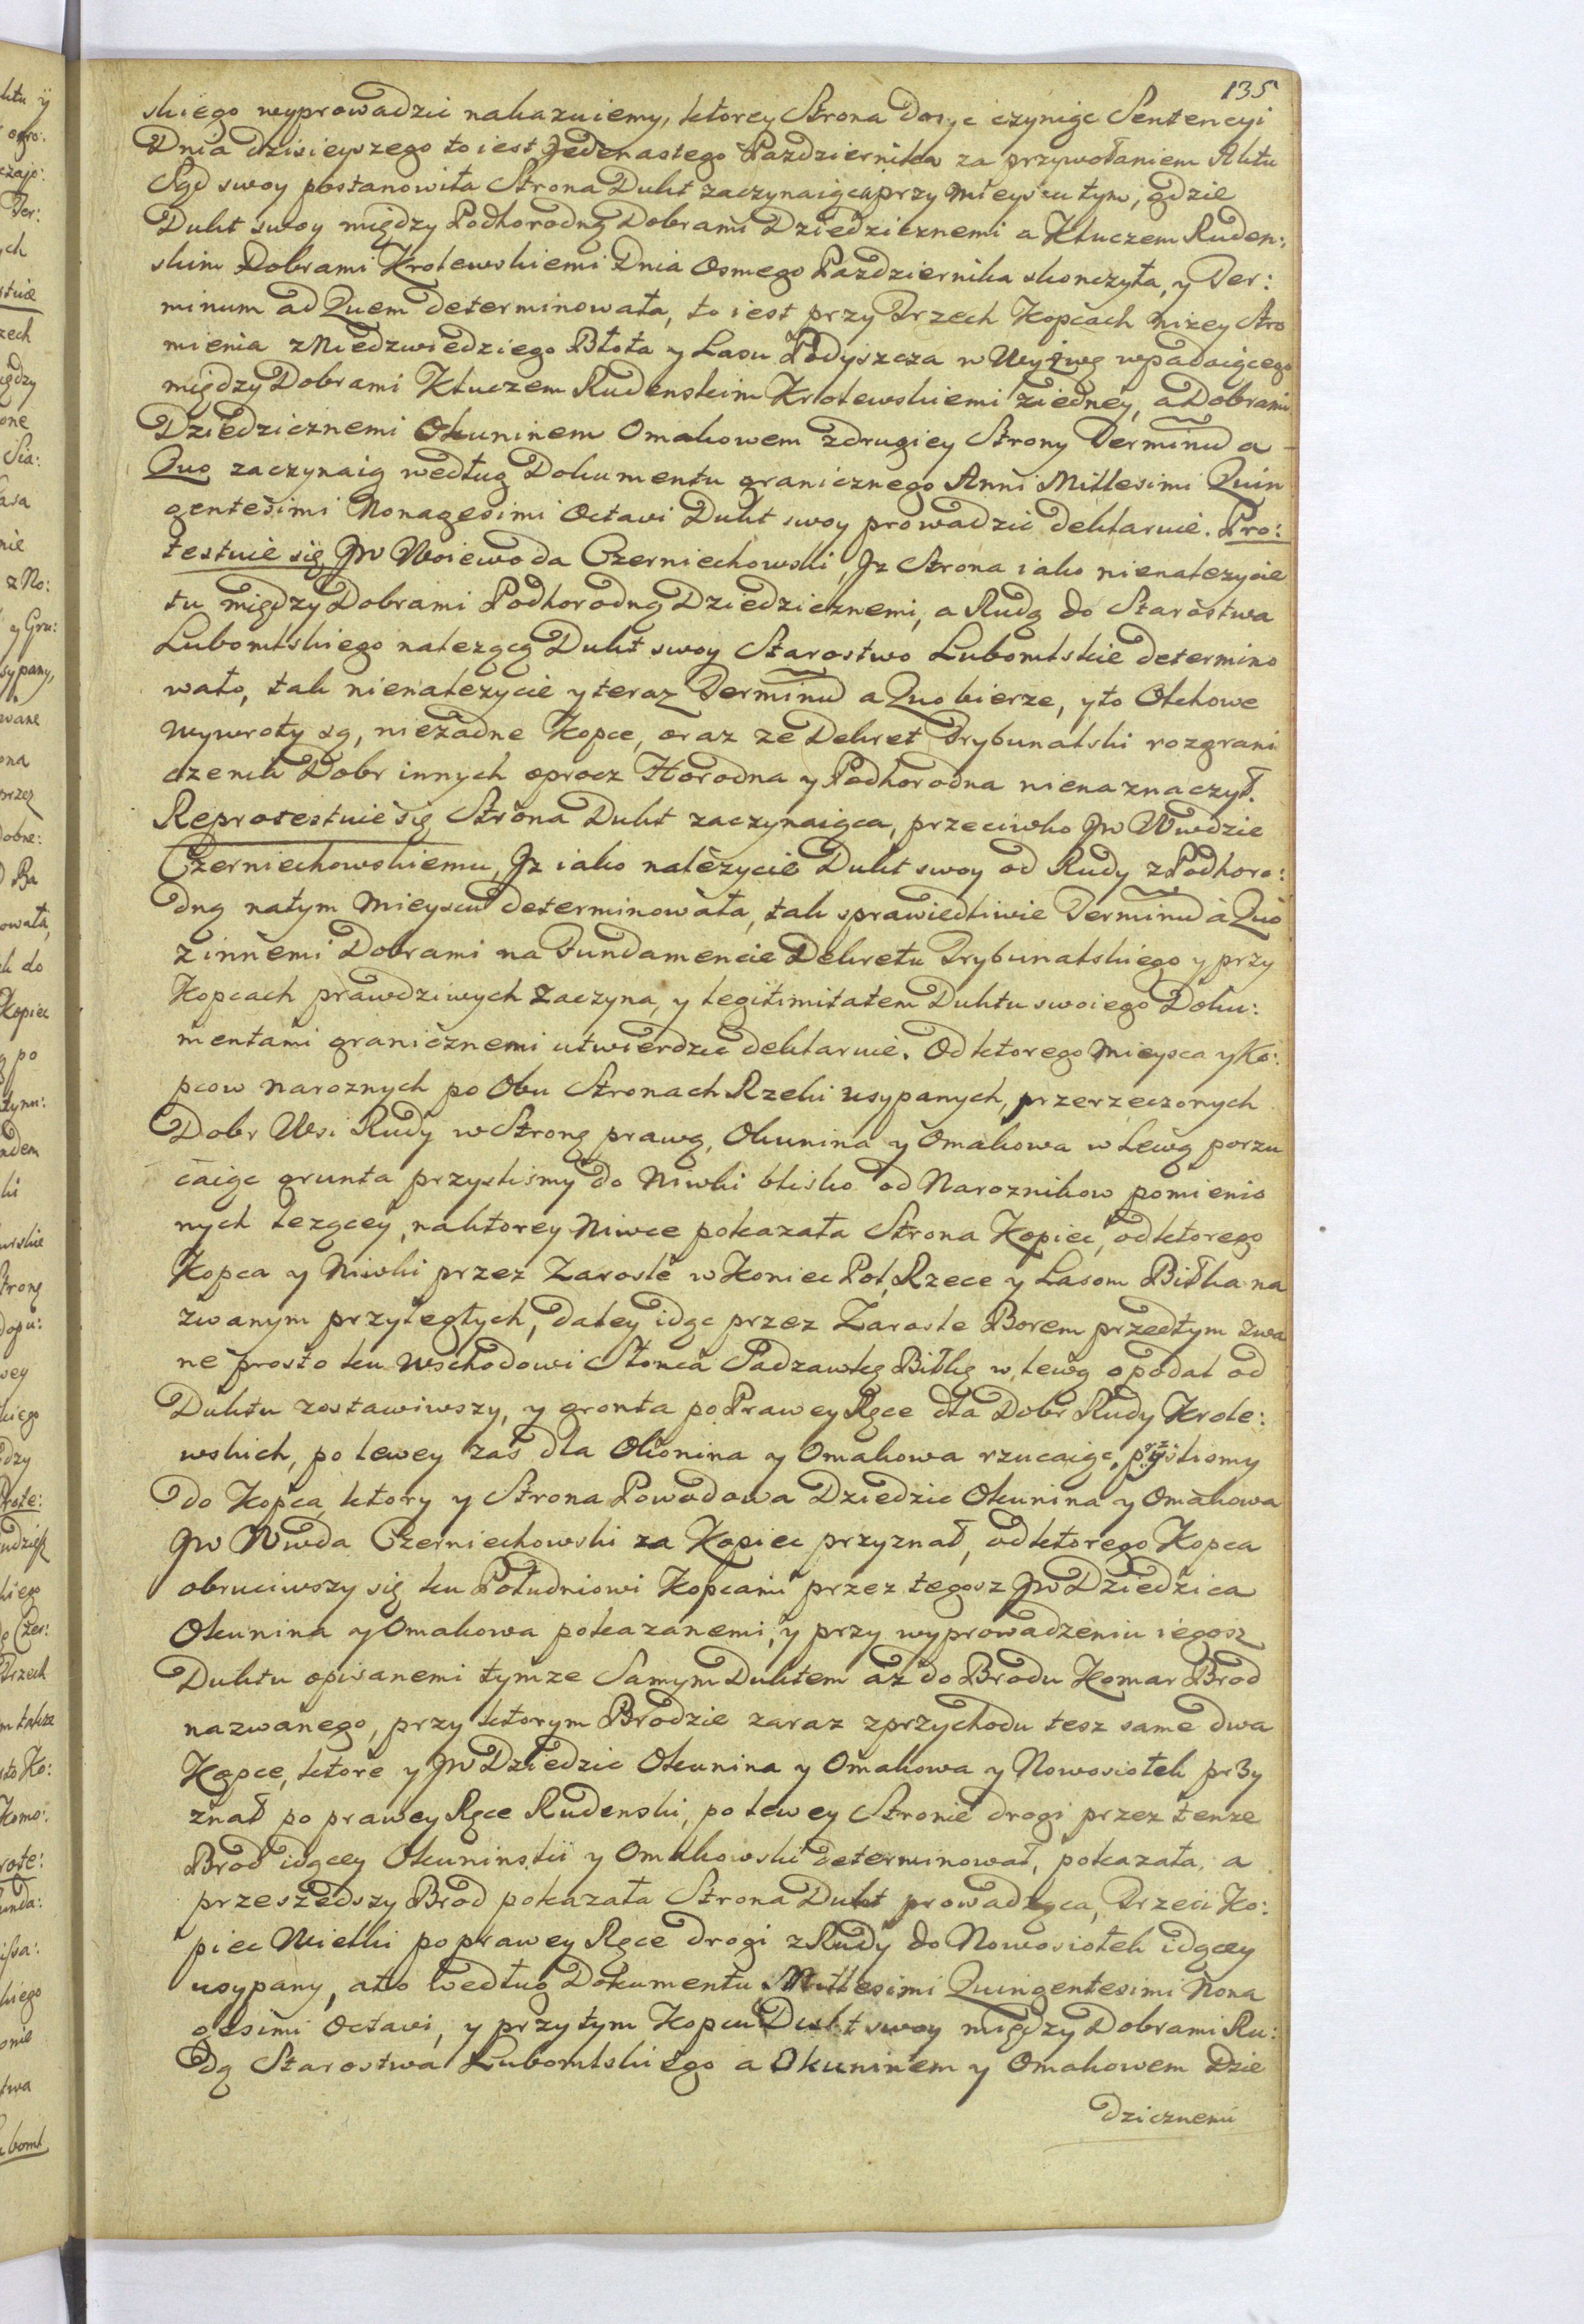 135
skiego wyprowadzic nakazuiemy, ktorey Strona dosyc czyniąc Sentencyi
Dnia dzisieyszego to iest Jedenastego Pazdziernika za przywołaniem Aktu
Sąd swoy postanowiła Strona Dukt zaczynaiąca przy mieyscu tym, gdzie
Dukt swoy między Podhorodną Dobrami Dziedzicznemi a Kluczem Ruden:
skim Dobrami Krolewskiemi Dnia Osmego Pazdziernika skonczyła, y Ter:
minum ad Quem determinowała, to iest przy Trzech Kopcach nizey Stro
mienia z Niedzwiedziego Błota y Lasu Podyszcza w Wyżwę wpadaiącego
między Dobrami Kluczem Rudenskim Krolewskiemi ziedney, a Dobrami
Dziedzicznemi Okuninem Omakowem zdrugiey Strony Terminũ a
Quo zaczynaią według Dokumentu granicznego Anni Millesimi Quin
gentesimi Nonagesimi Octavi Dukt swoy prowadzic deklaruie. Pro:
testuie się JW Woiewoda Czerniechowski, Jz Strona iako nienalezycie
tu między Dobrami Podhorodną Dziedzicznemi, a Rudą do Starostwa
Lubomlskiego nalezącą Dukt swoy Starostwo Lubomlskie determino
wało, tak nienalezycie y teraz Terminũ a Quo bierze, y to Olchowe
wywroty są, nieżadne Kopce, oraz ze Dekret Trybunalski rozgrani
czenia Dobr innych oprocz Horodna y Podhorodna nienaznaczył.
Reprotestuie się Strona Dukt zaczynaiąca, przeciwko JW Wwdzie
Czerniechowskiemu, Jz iako nalezycie Dukt swoy od Rudy z Podhoro:
dną natym Mieyscu determinowała, tak sprawiedliwie Terminũ a Quo
zinnemi Dobrami na Fundamencie Dekretu Trybunalskiego y przy
Kopcach prawdziwych zaczyna, y legitimitatem Duktu swoiego Doku:
mentami granicznemi utwierdzic deklaruie. Od ktorego Mieysca y Ko:
pcow naroznych po Obu Stronach Rzeki usypanych, przerzeczonych
Dobr Wsi Rudy w Stronę prawą, Okunina y Omakowa w Lewą porzu
caiąc grunta przyszlismy do Niwki blisko od Naroznikow pomienio
nych lezącey, naktorey Niwce pokazała Strona Kopiec, od ktorego
Kopca y Niwki przez Zarosle w Koniec Pol, Rzece y Lasom Biłka na
zwanym przyległych, daley idąc przez Zarosle Borem przedtym zwa
ne prosto ku wschodowi Słonca Sadzawkę Biłkę w lewą opodal od
Duktu zostawiwszy, y gronta po Prawey Ręce dla Dobr Rudy Krole:
wskich, po lewey zas dla Okonina y Omakowa rzucaiąc, przyslismy
do Kopca, ktory y Strona Powodowa Dziedzic Okunina y Omakowa
JW Wwda Czerniechowski za Kopiec przyznał, od ktorego Kopca
obruciwszy się ku Południowi Kopcami przez tegosz JW Dziedzica
Okunina y Omakowa pokazanemi, y przy wyprowadzeniu iegosz
Duktu opisanemi tymze Samym Duktem az do Brodu Komar Brod
nazwanego, przy ktorym Brodzie zaraz zprzychodu tesz same dwa
Kopce, ktore y JW Dziedzic Okunina y Omakowa y Nowosiołek przy
znał po prawey Ręce Rudenski, po lewey Stronie drogi przez tenze
Brod idącey Okuninskii y Omakowski determinował, pokazała, a
przeszedszy Brod pokazała Strona Dukt prowadząca, Trzeci Ko:
piec Wielki po prawey Ręce drogi z Rudy do Nowosiołek idącey
usypany, atto według Dokumentu Millesimi Quingentesimi Nona
gesimi Octavi, y przytym Kopcu Dukt swoy między Dobrami Ru:
dą Starostwa Lubomlskiego a Okuninem y Omakowem Dzie
dzicznemi